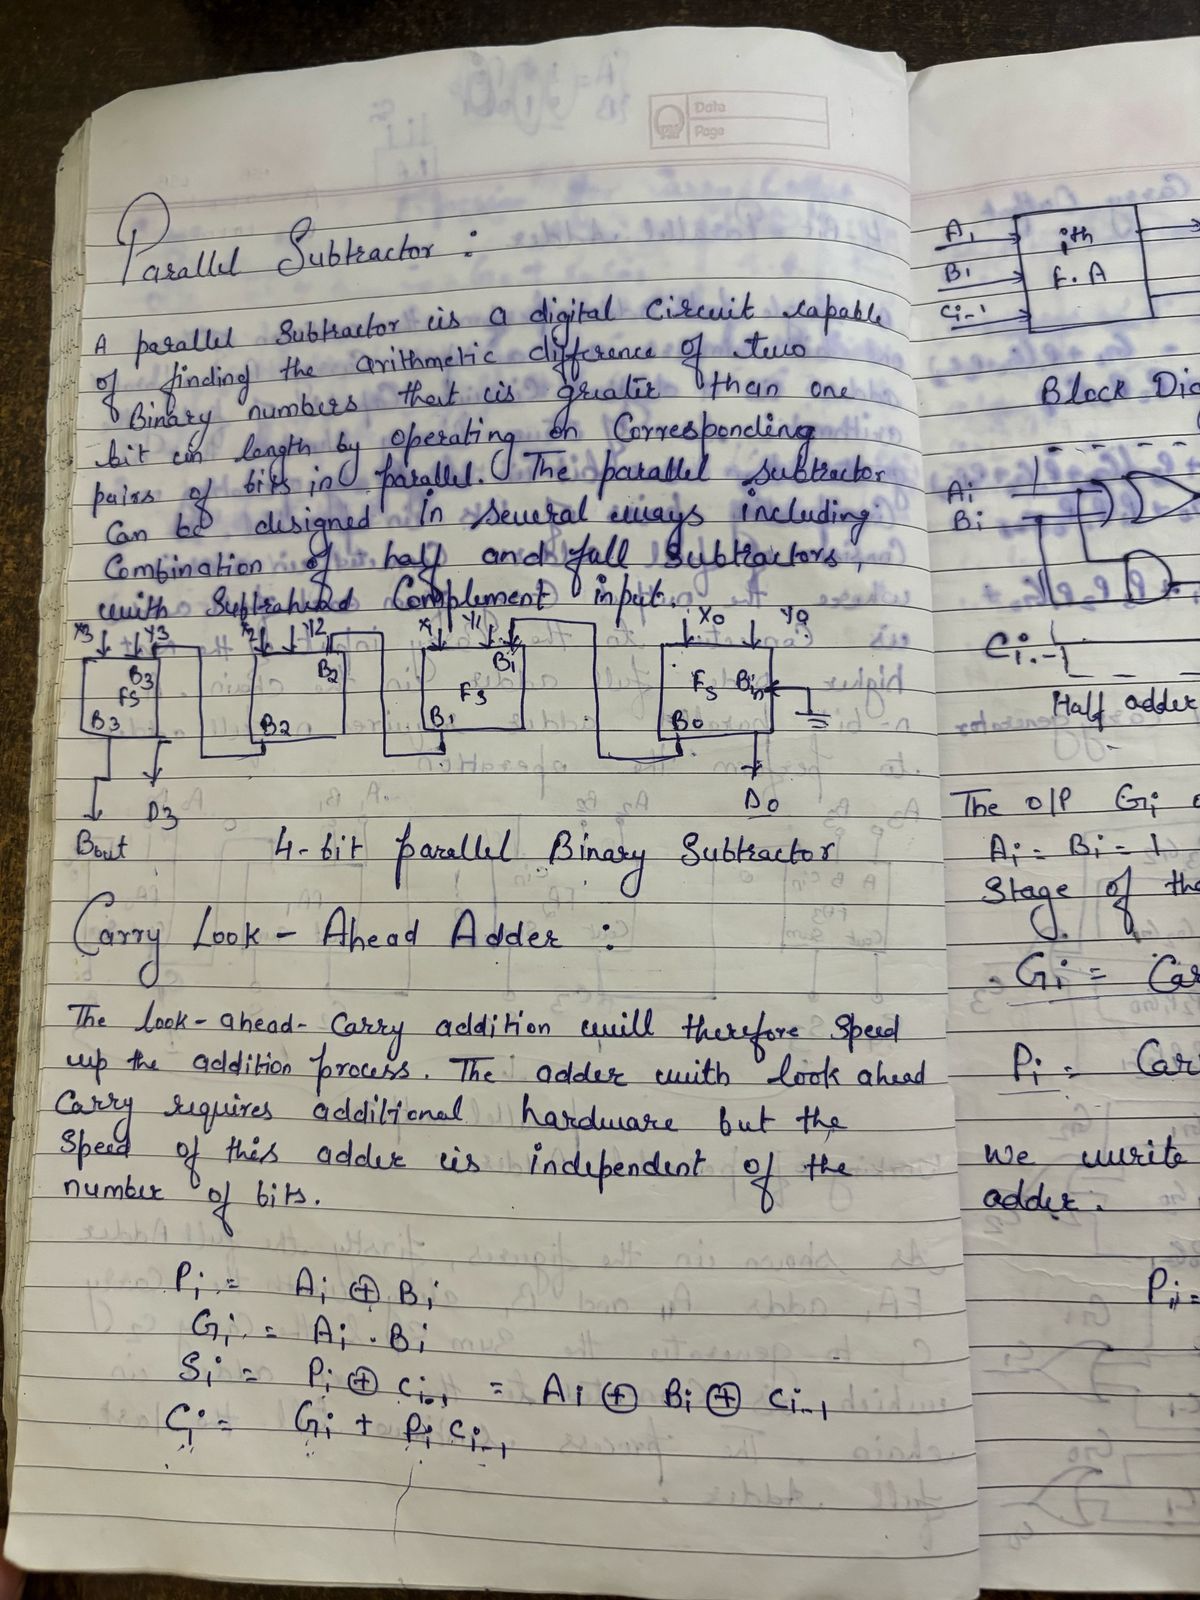 Date
Page
Parallel Subtractor :
A parallel Subtractor is a digital Circuit capable
of finding the arithmetic difference of two
Binary numbers that is greater than one
bit in length by operating on Corresponding
pairs of bits in parallel. The parallel subtractor
Can be designed in several ways including
Combination of half and full subtractors,
with Subtrahend Complement input.
X3 Y3 X2 Y2 X1 Y1 X0 Y0
B3 B2 B1
FS FS FS Bin
B3 B2 B1 B0
D3 D0
Bout 4-bit parallel Binary Subtractor
Carry Look - Ahead Adder :
The look-ahead-Carry addition will therefore Speed
up the addition process. The adder with look ahead
Carry requires additional hardware but the
Speed of this adder is independent of the
number of bits.
Pi = Ai ⊕ Bi
Gi = Ai . Bi
Si = Pi ⊕ Ci-1 = Ai ⊕ Bi ⊕ Ci-1
Ci = Gi + Pi Ci-1
A1 ith
B1 F.A
Ci-1
Block Dia
Ai
Bi
Ci-1
Half adder
The O/P Gi
Ai = Bi = 1
Stage of the
Gi = Car
Pi = Car
We write
adder.
Pi =